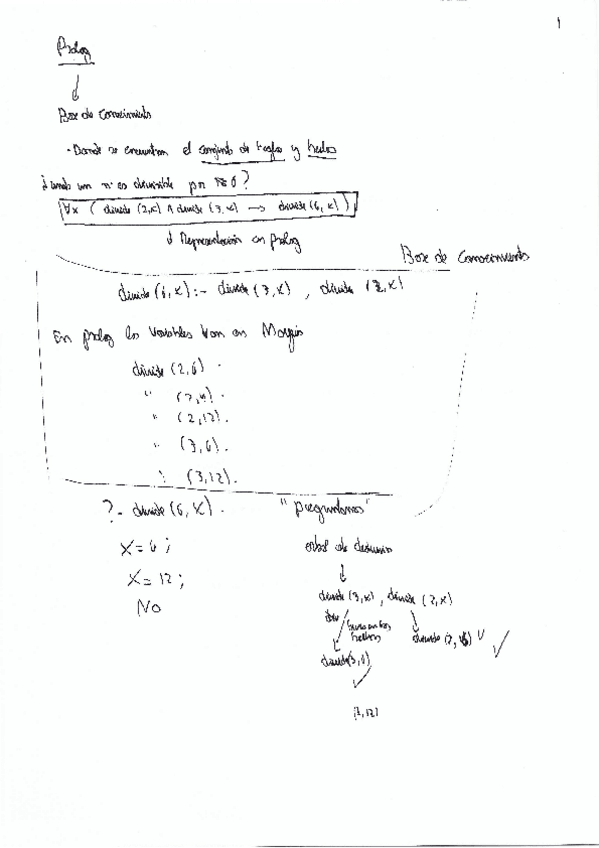 1
Prolog
Base de conocimiento
· Donde se encuentran el conjunto de reglas y hechos
¿Cuando un nº es divisible por 6?
∀x ( divide (2,x) ∧ divide (3,x) → divide (6,x) )
↓ Representación en prolog
Base de Conocimiento
divide (6,X) :- divide (3,X) , divide (2,X)
En prolog las variables van en Mayus
divide (2,6) .
" (2,4) .
" (2,12) .
" (3,6) .
" (3,12) .
?- divide (6,X) .
"preguntamos"
X = 6 ;
X = 12 ;
No
arbol de
divide (3,x) , divide (2,x)
busca en los
hechos
divide (2,6)
divide (3,6)